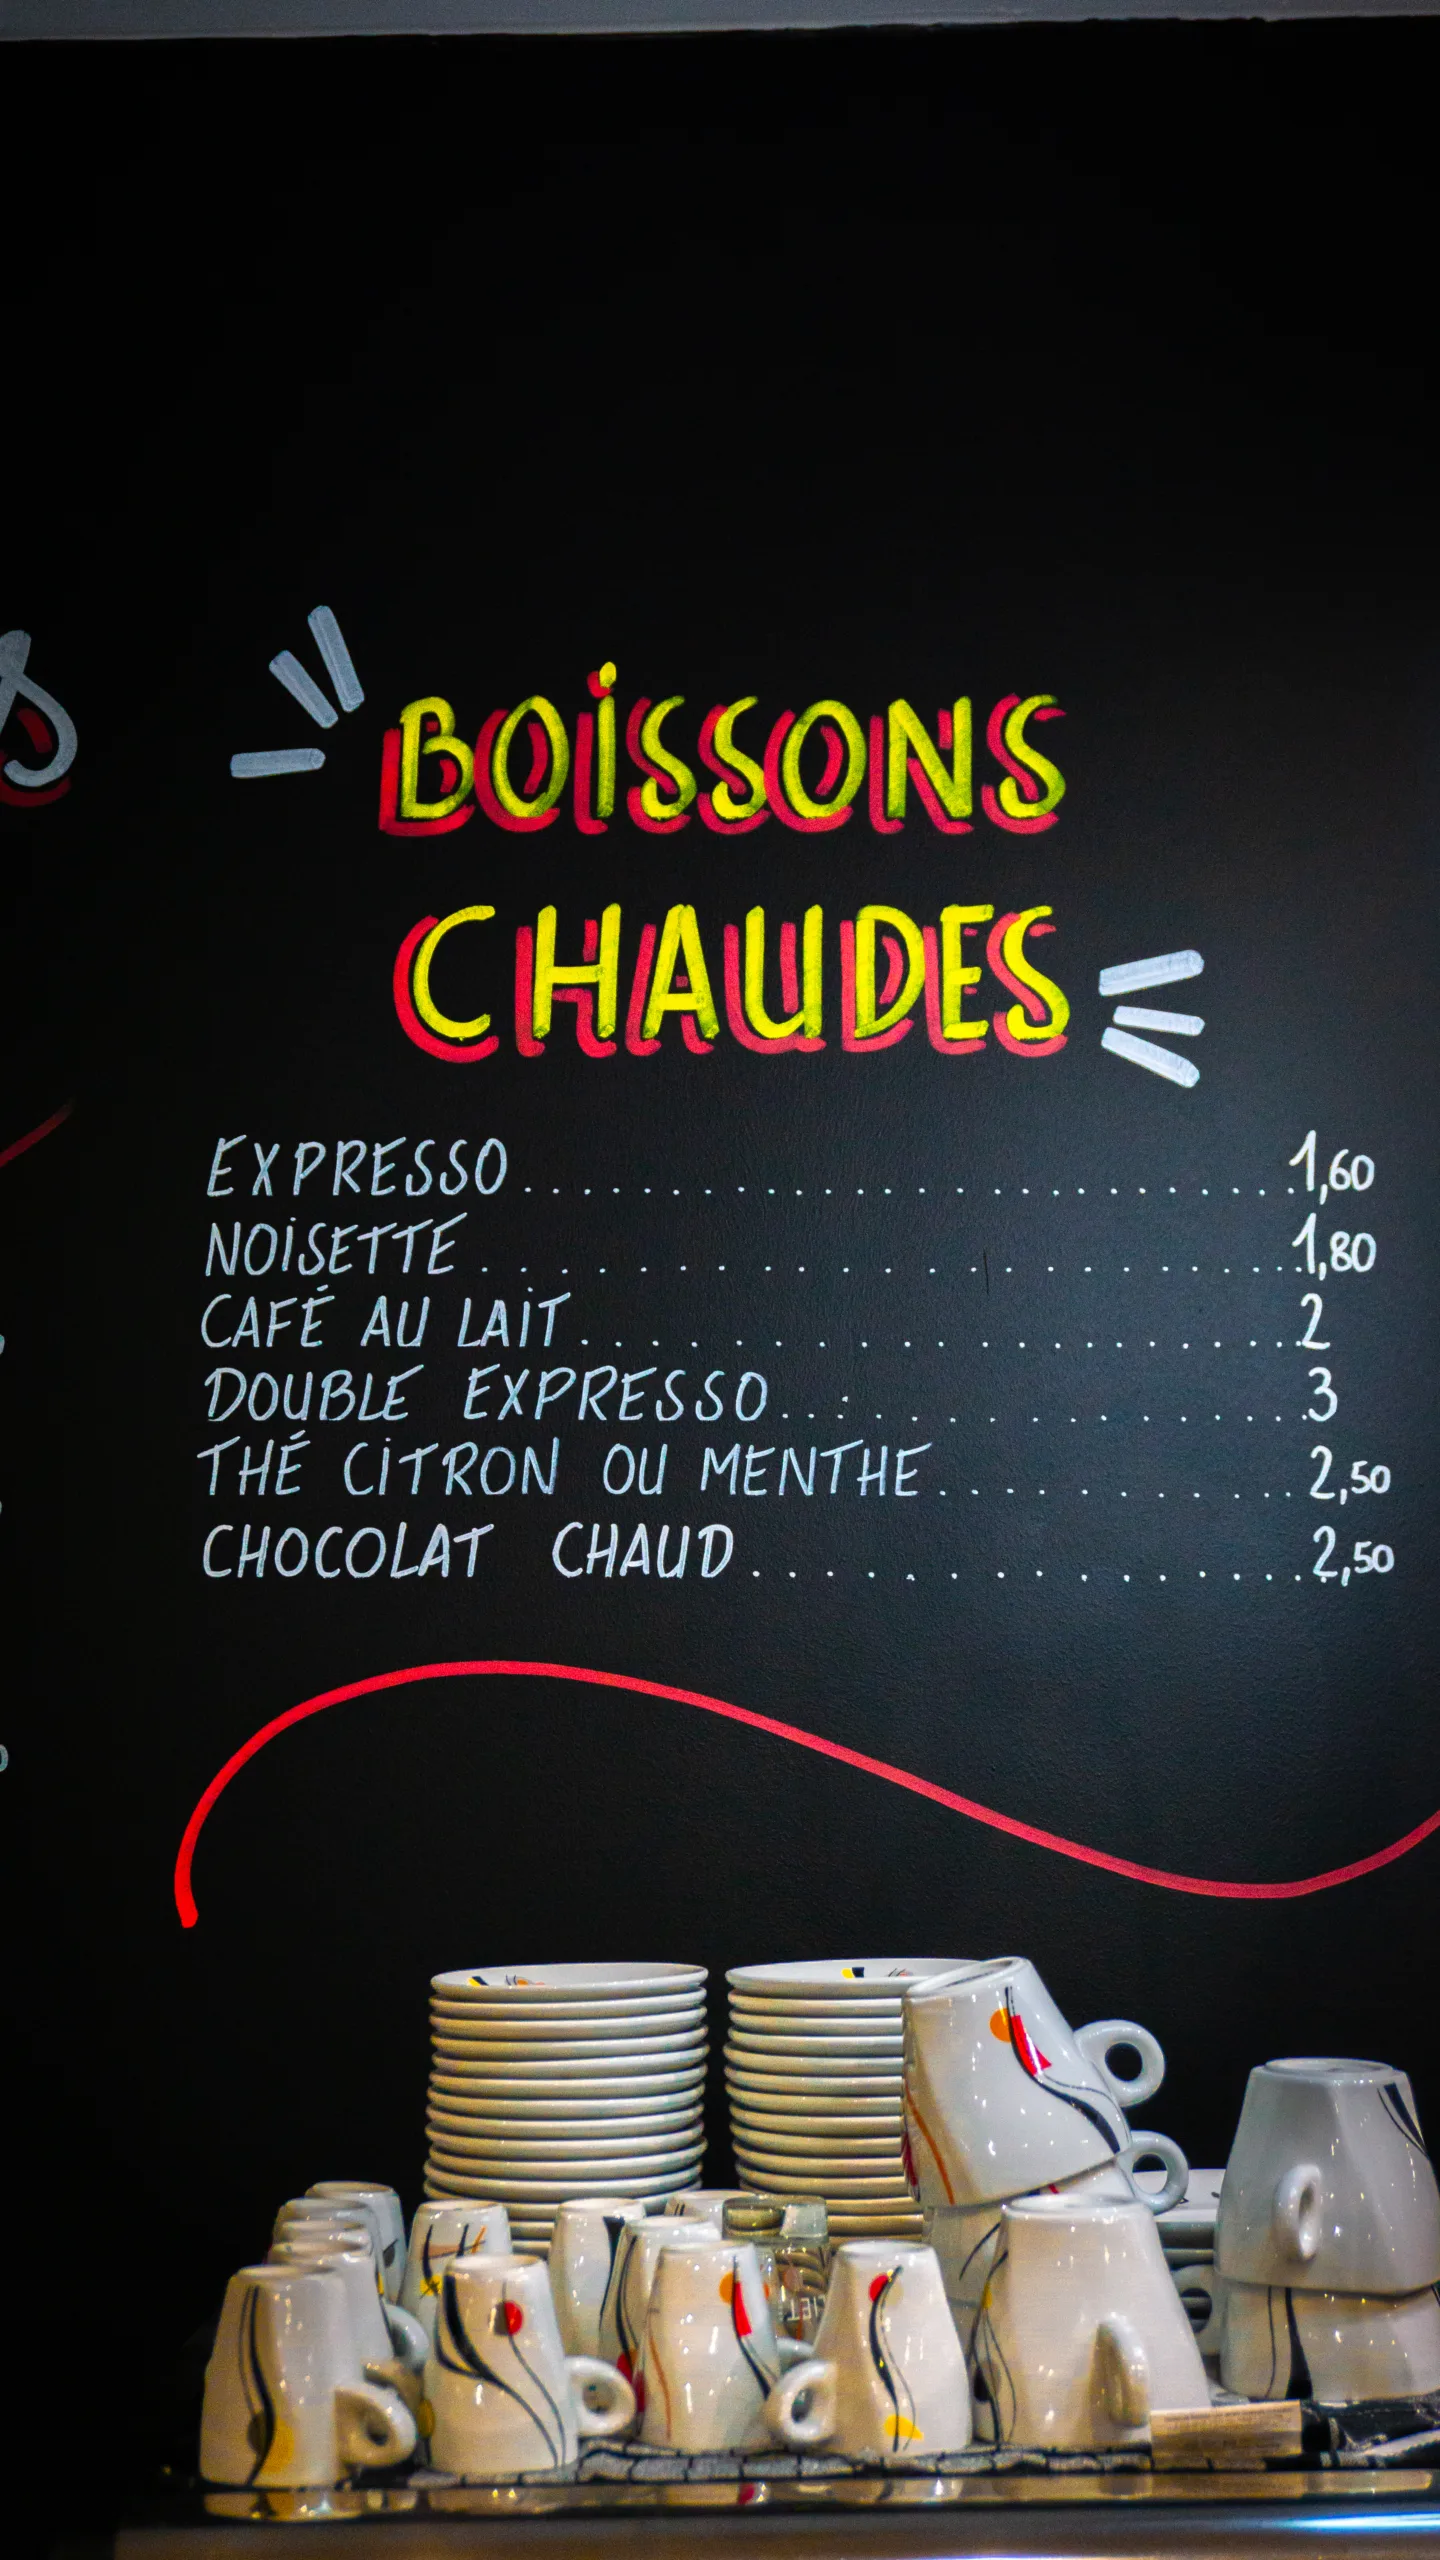 BOISSONS
CHAUDES
EXPRESSO..........................1,60
NOISETTE..........................1,80
CAFÉ AU LAIT..........................2
DOUBLE EXPRESSO..................3
THÉ CITRON OU MENTHE............2,50
CHOCOLAT CHAUD..................2,50